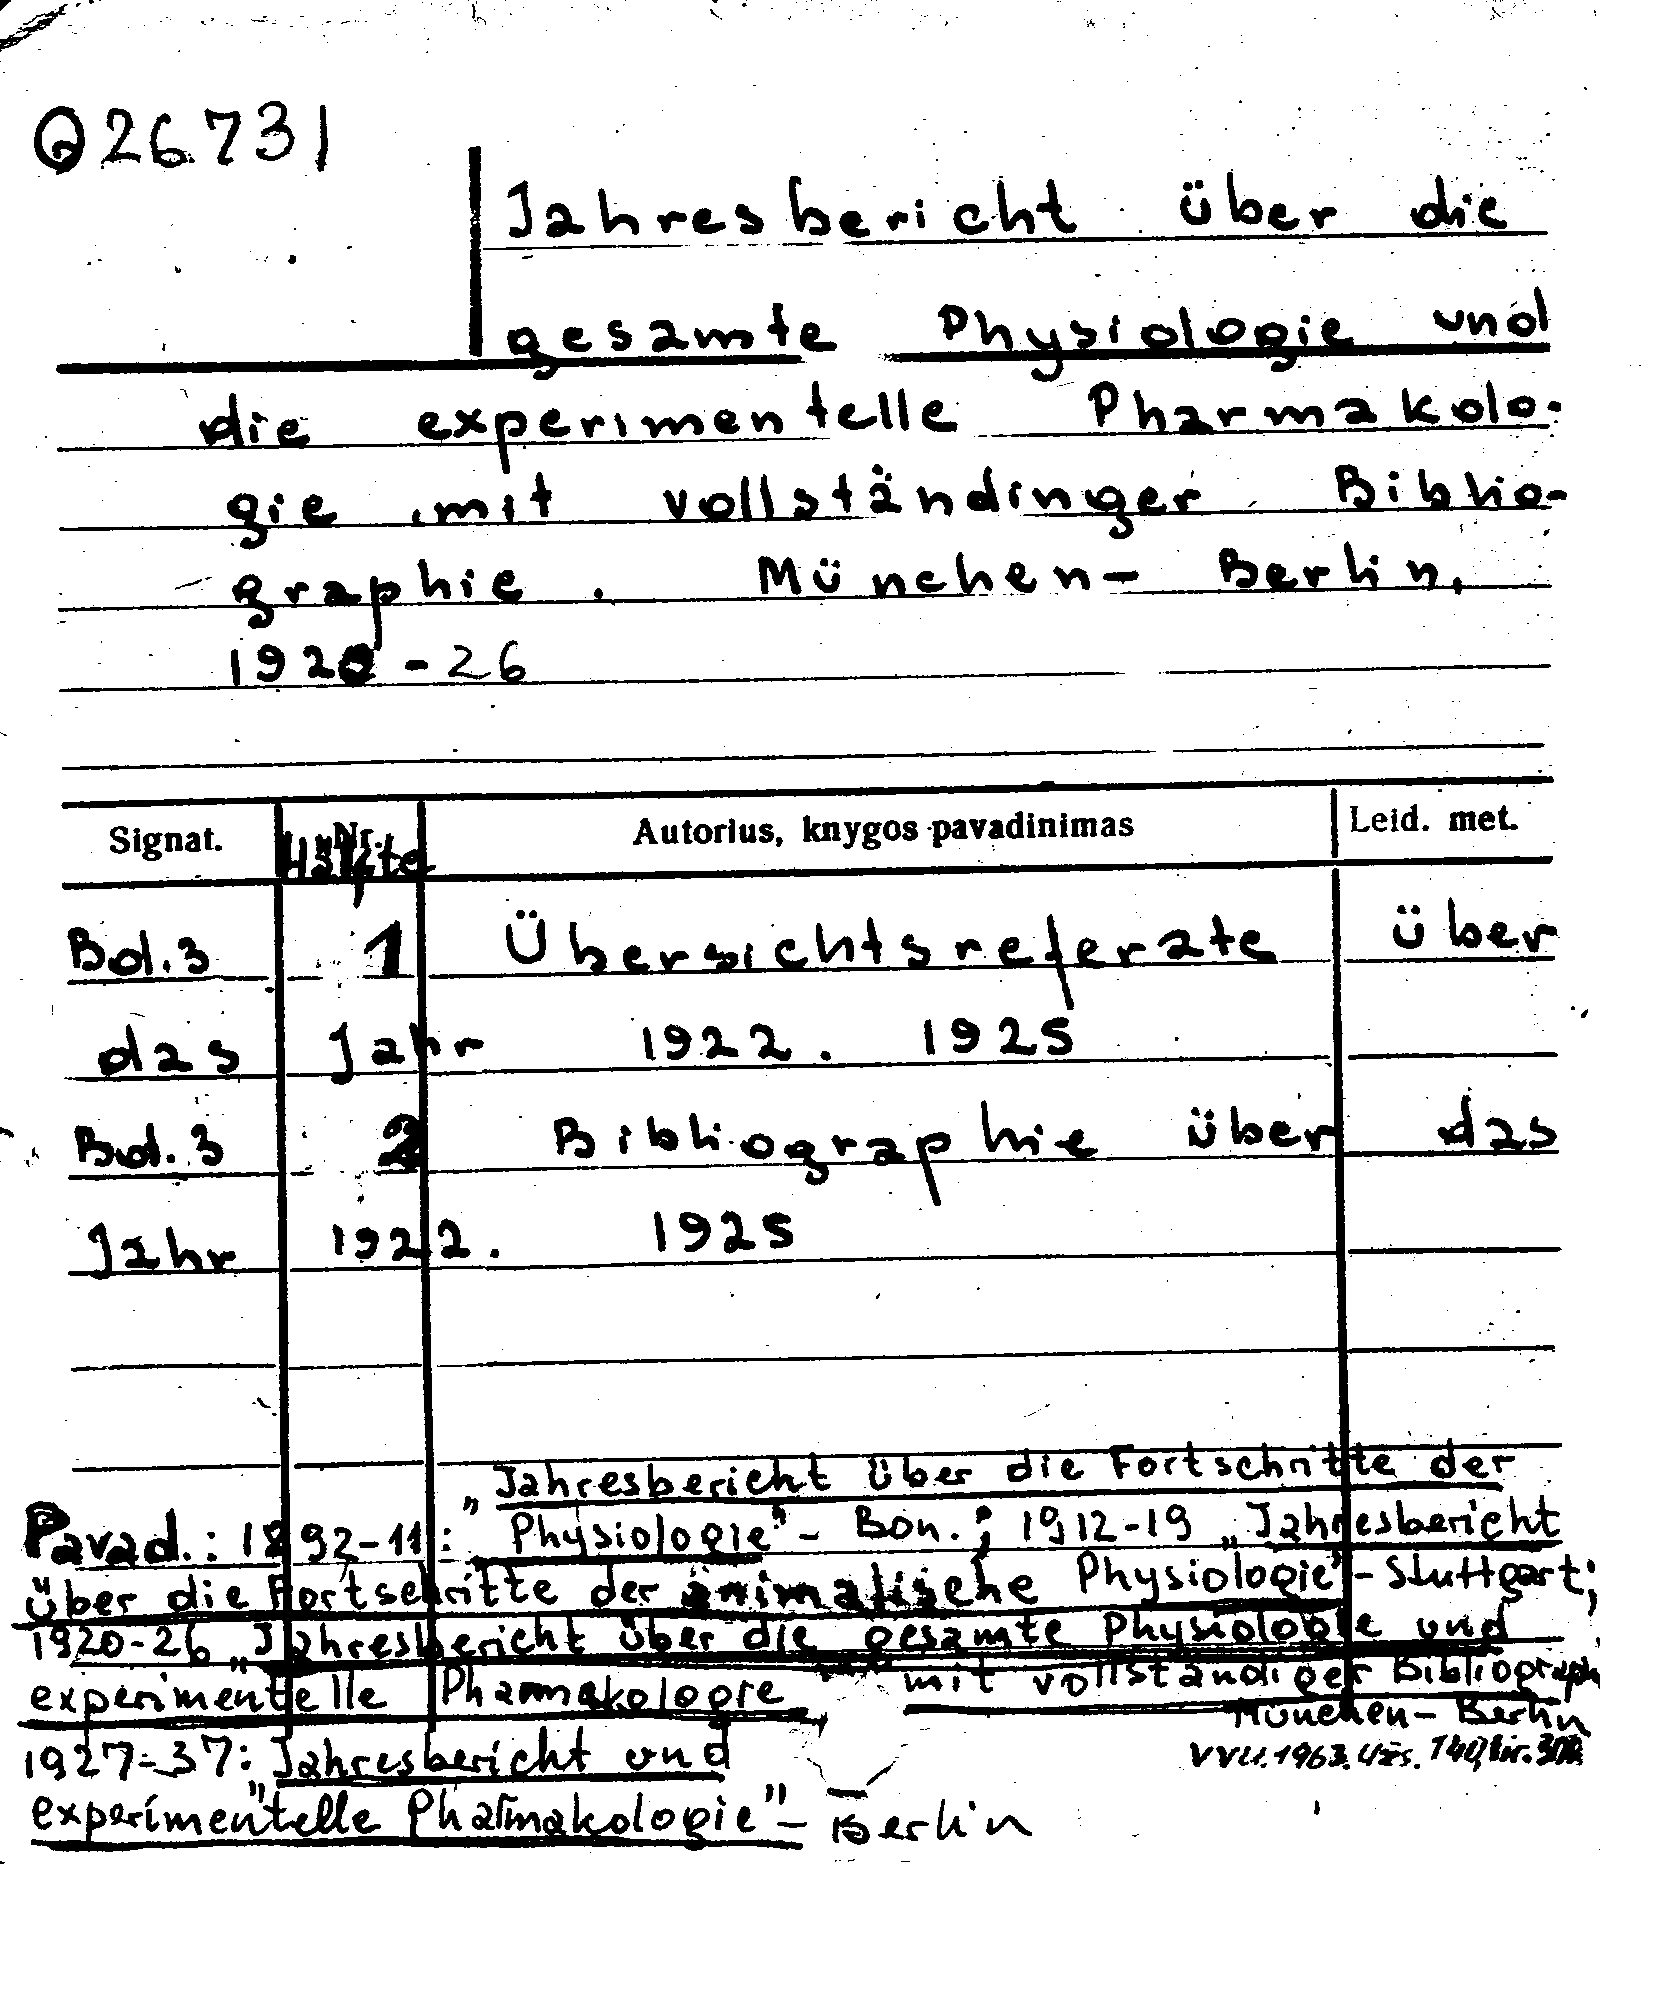 Q26731
Jahresbericht über die
gesamte Physiologie und
die experimentelle Pharmakolo-
gie mit vollständinger Biblio-
graphie. München - Berlin,
1920 - 26
Signat. Nr. Autorius, knygos pavadinimas Leid. met.
Hälfte
Bd. 3 1 Übersichtsreferate über
das Jahr 1922. 1925
Bd. 3 2 Bibliographie über das
Jahr 1922. 1925
"Jahresbericht über die Fortschritte der
Pavad.: 1892-11: Physiologie" - Bon.; 1912-19 "Jahresbericht
über die Fortschritte der animalische Physiologie" - Stuttgart;
1920-26 "Jahresbericht über die gesamte Physiologie und
experimentelle Pharmakologie mit vollständiger Bibliograph
München - Berlin
1927-37: Jahresbericht und VVU. 1963. Užs.
"experimentelle Pharmakologie" - Berlin